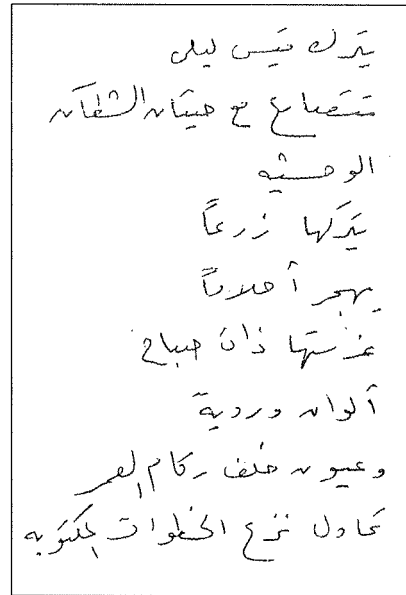 يترك قيس ليلى
تتصارع مع حيتان الشطآن
الوحشيه
يتركها زرعاً
يهجر أحلاماً
غرستها ذات صباح
ألوان وردية
وعيون خلف ركام العمر
تحاول نزع الخطوات المكتوبه